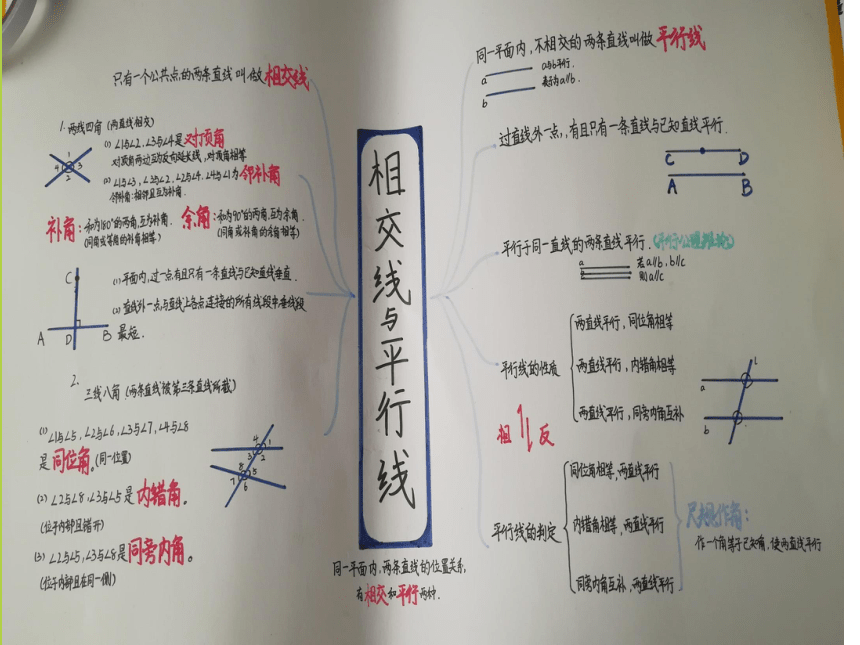 只有一个公共点的两条直线叫做相交线
1. 两线四角 (两直线相交)
(1) ∠1与∠2, ∠3与∠4是对顶角
对顶角两边互为反向延长线, 对顶角相等
1
4 3
2
(2) ∠1与∠3, ∠3与∠2, ∠2与∠4, ∠4与∠1为邻补角
邻补角: 相邻且互为补角.
补角: 和为180°的两角, 互为补角.
(同角或等角的补角相等)
余角: 和为90°的两角, 互为余角.
(同角或补角的余角相等)
C
A D B
(1) 平面内, 过一点有且只有一条直线与已知直线垂直.
(2) 直线外一点与直线上各点连接的所有线段中垂线段
最短.
2.
三线八角 (两条直线被第三条直线所截)
(1) ∠1与∠5, ∠2与∠6, ∠3与∠7, ∠4与∠8
是同位角。(同一位置)
(2) ∠2与∠8, ∠3与∠5是内错角。
(位于内部且错开)
(3) ∠2与∠5, ∠3与∠8是同旁内角。
(位于内部且在同一侧)
4 1
3 2
8 5
7 6
相交线与平行线
同一平面内, 两条直线的位置关系,
有相交和平行两种.
同一平面内, 不相交的两条直线叫做平行线
a
b
a与b平行.
表示为a∥b.
过直线外一点, 有且只有一条直线与已知直线平行.
C D
A B
平行于同一直线的两条直线平行. (平行公理推论)
a
若a∥b, b∥c
则a∥c
平行线的性质
两直线平行, 同位角相等
两直线平行, 内错角相等
两直线平行, 同旁内角互补
l
a
b
相反
平行线的判定
同位角相等, 两直线平行
内错角相等, 两直线平行
同旁内角互补, 两直线平行
尺规作角:
作一个角等于已知角, 使两直线平行